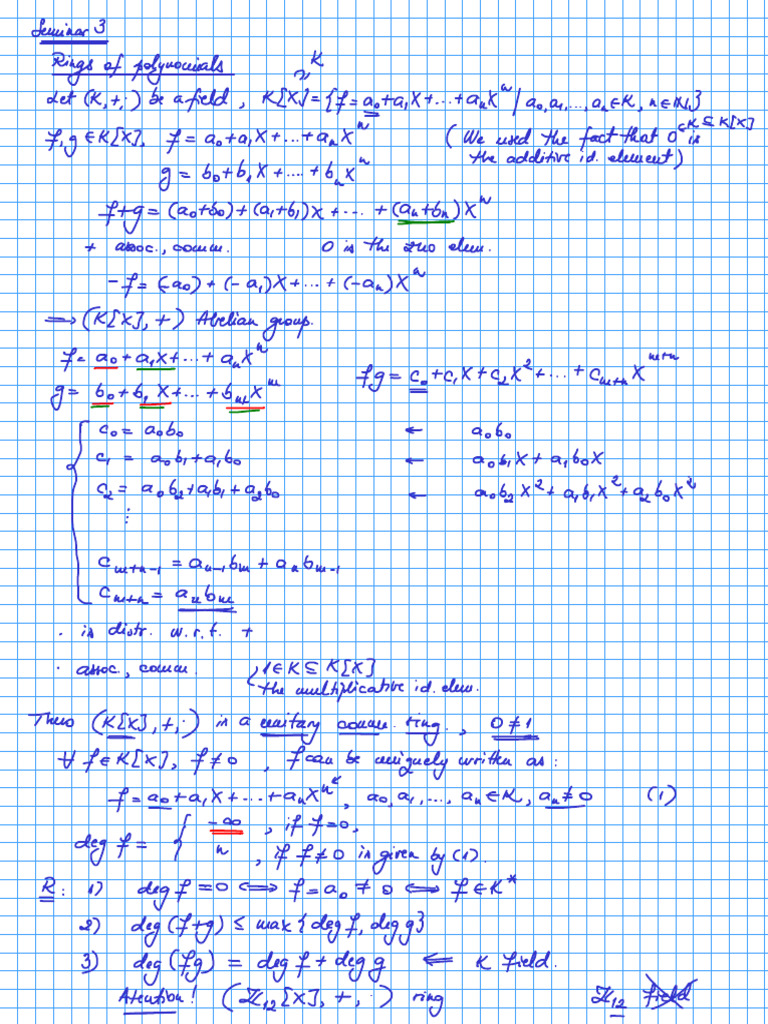 Seminar 3
Rings of polynomials
Let (K,+,·) be a field, K[X]={f=a₀+a₁X+...+aₙXⁿ / a₀,a₁,...,aₙ∈K, n∈ℕ}
K
f,g∈K[X], f=a₀+a₁X+...+aₙXⁿ (We used the fact that 0∈K⊆K[X] is
g=b₀+b₁X+...+bₙXⁿ the additive id. element)
f+g=(a₀+b₀)+(a₁+b₁)X+...+(aₙ+bₙ)Xⁿ
+ assoc., comm. 0 is the zero elem.
-f=(-a₀)+(-a₁)X+...+(-aₙ)Xⁿ
⟹ (K[X],+) Abelian group.
f=a₀+a₁X+...+aₙXⁿ
g=b₀+b₁X+...+bₘXᵐ fg=c₀+c₁X+c₂X²+...+cₘ₊ₙXᵐ⁺ⁿ
c₀=a₀b₀ ← a₀b₀
c₁=a₀b₁+a₁b₀ ← a₀b₁X+a₁b₀X
c₂=a₀b₂+a₁b₁+a₂b₀ ← a₀b₂X²+a₁b₁X²+a₂b₀X²
⋮
cₘ₊ₙ₋₁=aₙ₋₁bₘ+aₙbₘ₋₁
cₘ₊ₙ=aₙbₘ
· is distr. w.r.t. +
· assoc., comm. , 1∈K⊆K[X]
the multiplicative id. elem.
Thus (K[X],+,·) is a unitary comm. ring., 0≠1
∀ f∈K[X], f≠0, f can be uniquely written as:
f=a₀+a₁X+...+aₙXⁿ, a₀,a₁,...,aₙ∈K, aₙ≠0 (1)
deg f = { -∞, if f=0,
n, if f≠0 is given by (1).
R: 1) deg f=0 ⟺ f=a₀≠0 ⟺ f∈K*
2) deg(f+g) ≤ max{deg f, deg g}
3) deg(fg) = deg f + deg g ⟸ K field.
Atention! (ℤ₁₂[X],+,·) ring ℤ₁₂ field